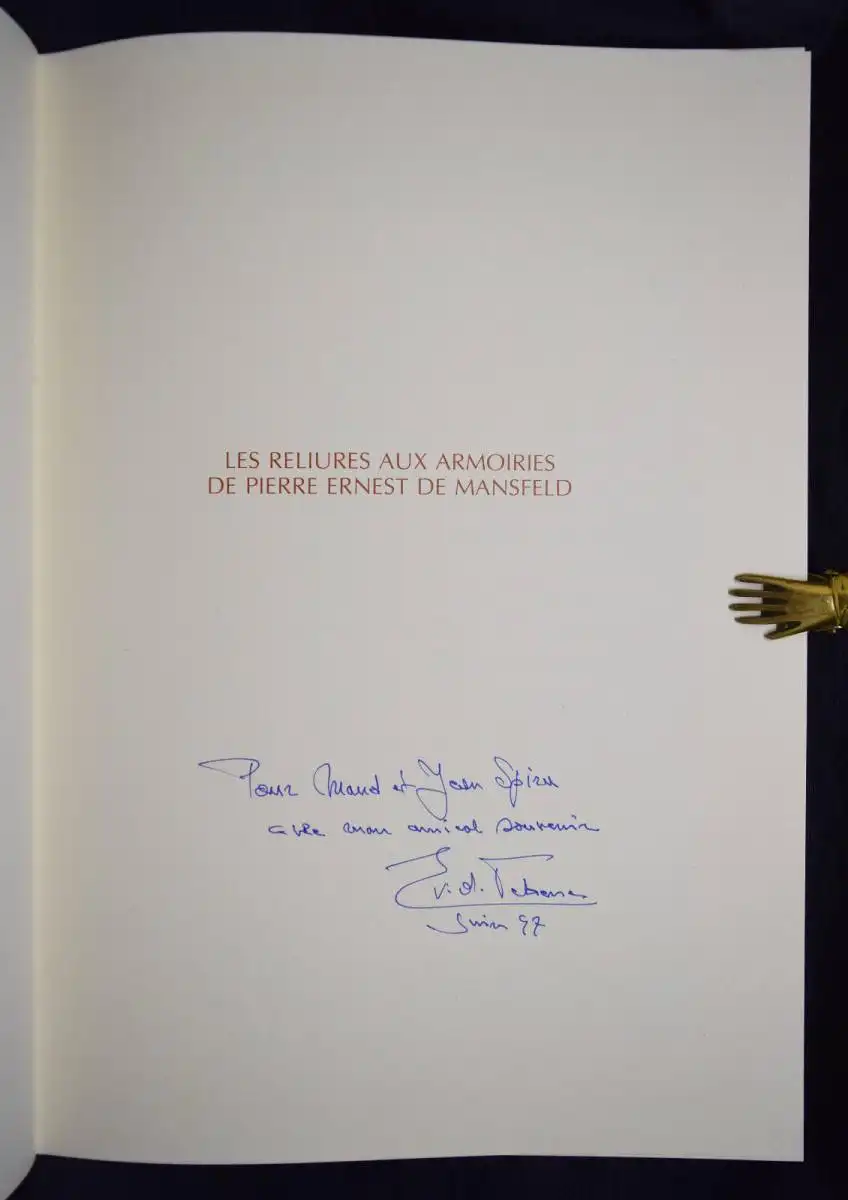 LES RELIURES AUX ARMOIRIES
DE PIERRE ERNEST DE MANSFELD
Pour Maud et Jean
avec mon amical souvenir
E. v. d.
Juin 97